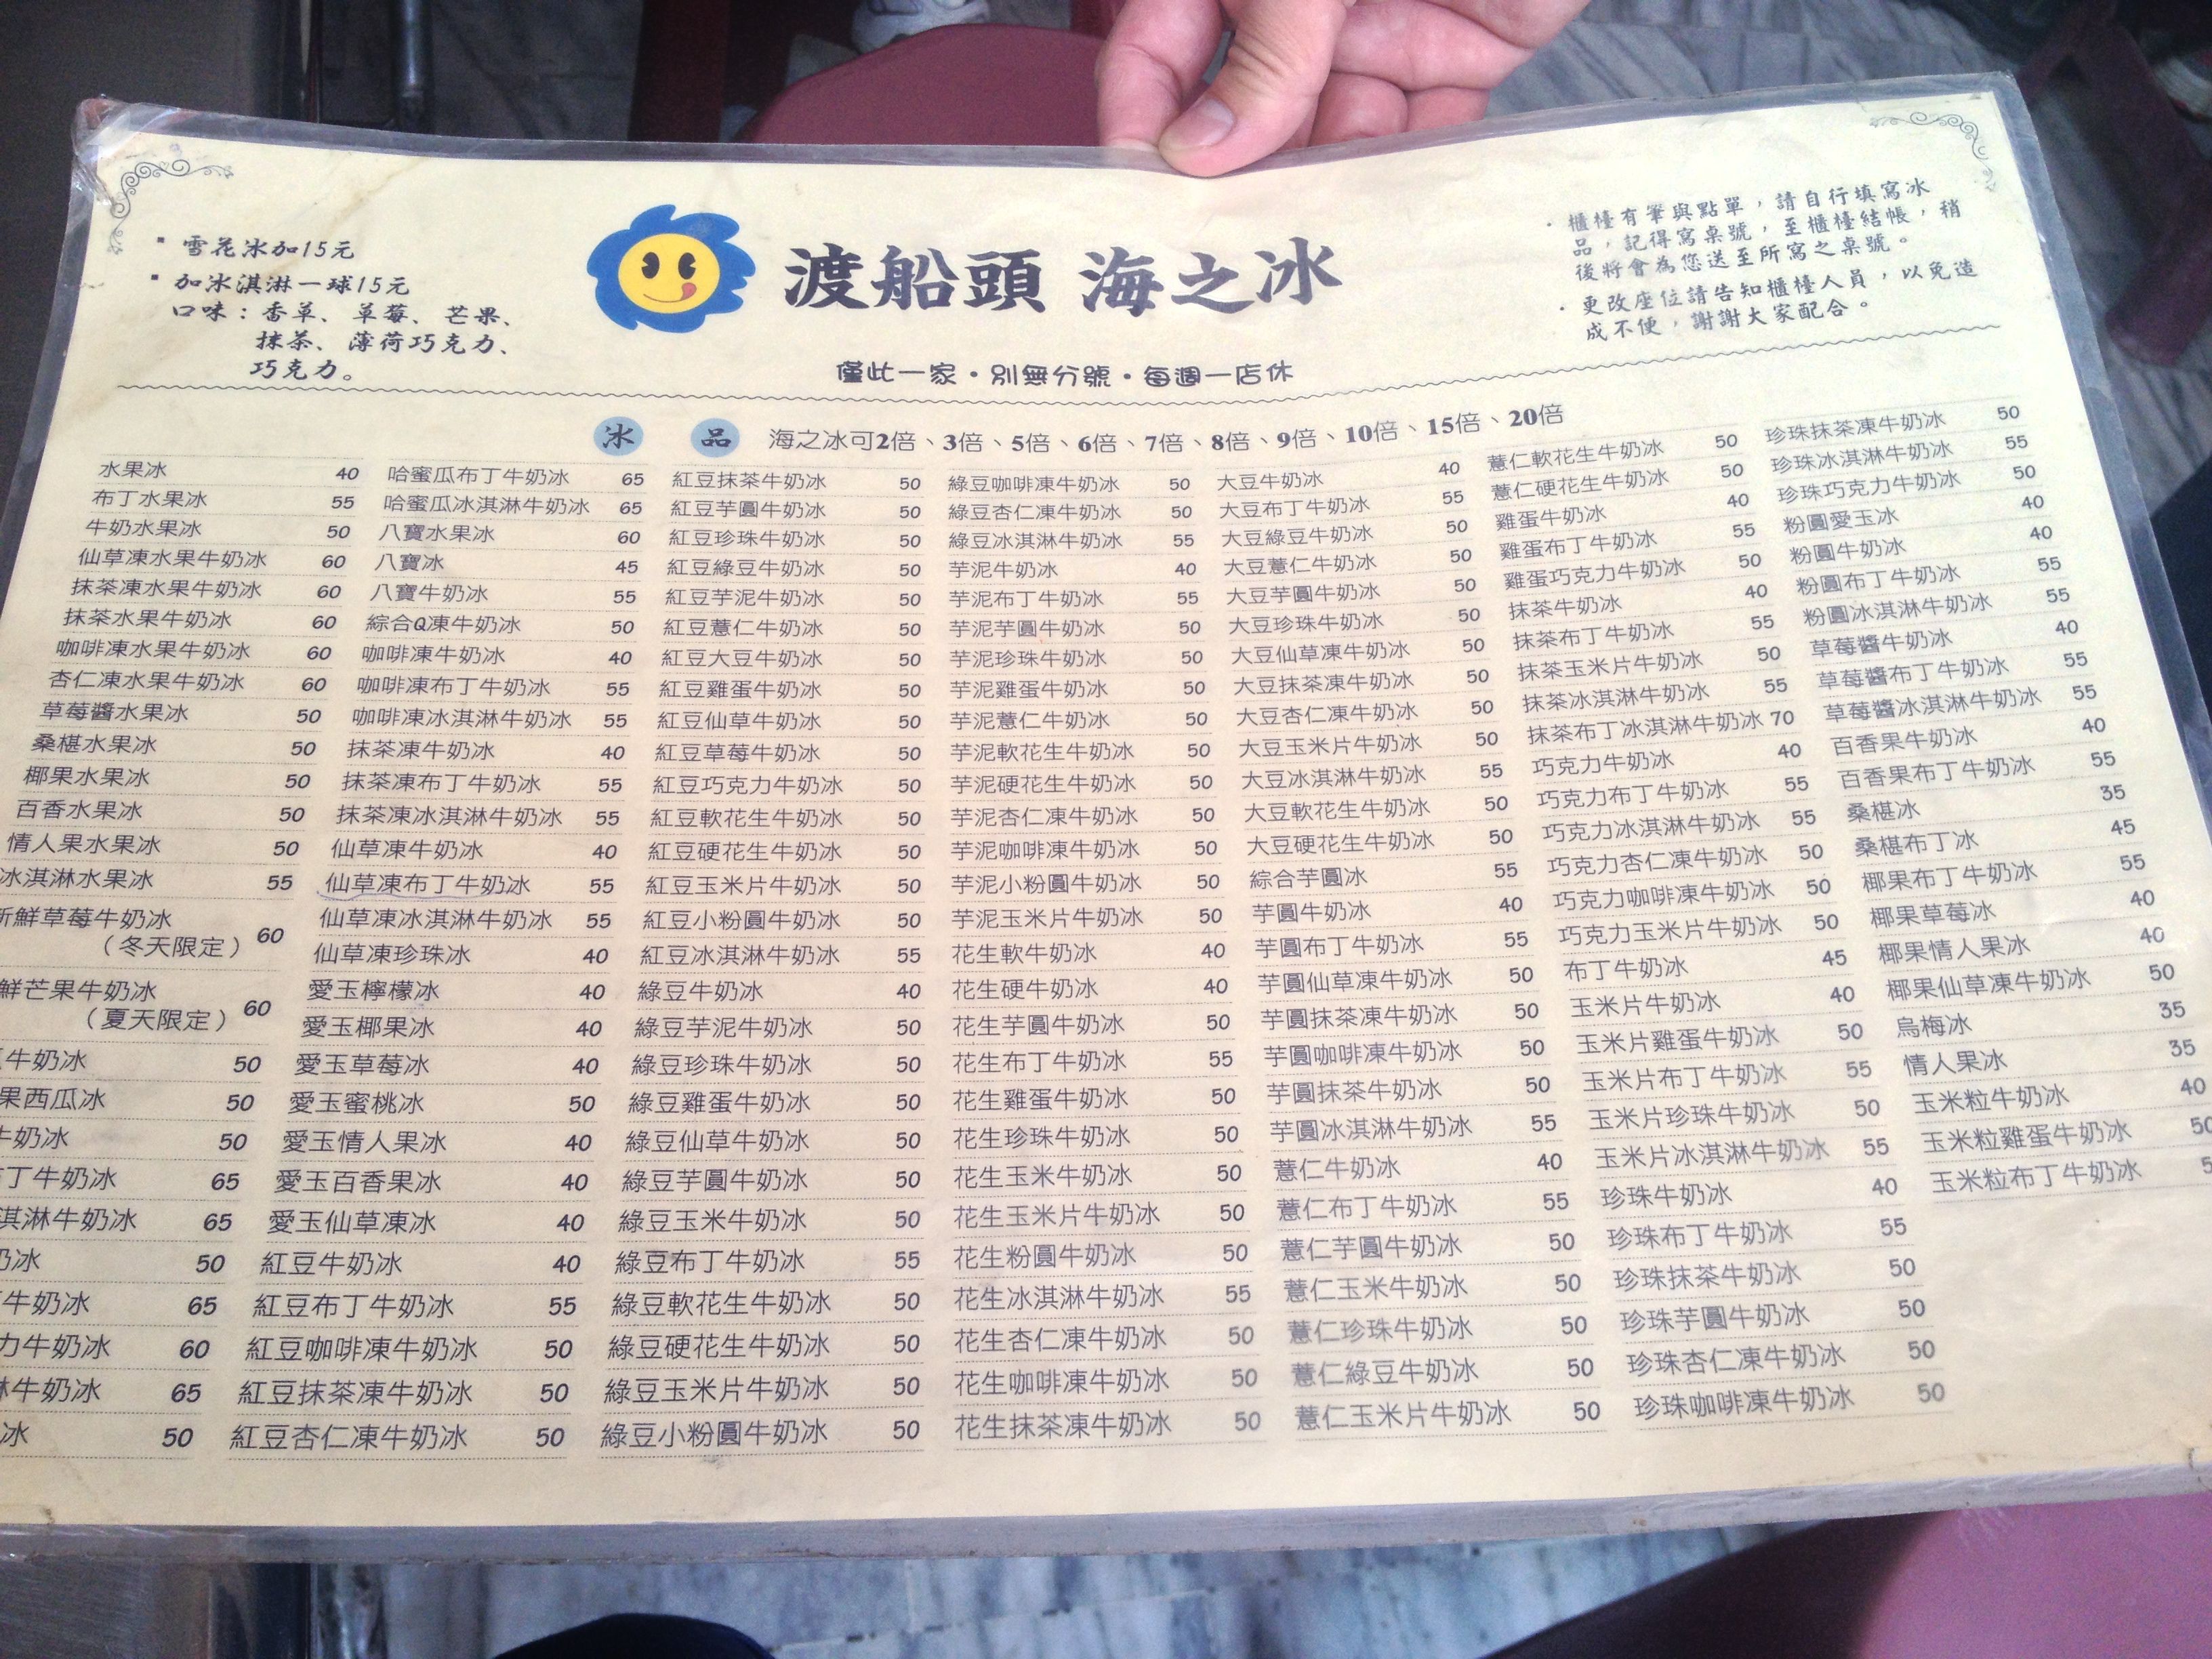 ▪ 雪花冰加15元
▪ 加冰淇淋一球15元
口味：香草、草莓、芒果、
抹茶、薄荷巧克力、
巧克力。
渡船頭 海之冰
僅此一家・別無分號・每週一店休
・櫃檯有筆與點單，請自行填寫冰
品，記得寫桌號，至櫃檯結帳，稍
後將會為您送至所寫之桌號。
・更改座位請告知櫃檯人員，以免造
成不便，謝謝大家配合。
冰 品 海之冰可2倍、3倍、5倍、6倍、7倍、8倍、9倍、10倍、15倍、20倍
水果冰 40
布丁水果冰 55
牛奶水果冰 50
仙草凍水果牛奶冰 60
抹茶凍水果牛奶冰 60
抹茶水果牛奶冰 60
咖啡凍水果牛奶冰 60
杏仁凍水果牛奶冰 60
草莓醬水果冰 50
桑椹水果冰 50
椰果水果冰 50
百香水果冰 50
情人果水果冰 50
冰淇淋水果冰 55
新鮮草莓牛奶冰
（冬天限定） 60
鮮芒果牛奶冰
（夏天限定） 60
牛奶冰 50
果西瓜冰 50
牛奶冰 50
丁牛奶冰 65
淇淋牛奶冰 65
奶冰 50
牛奶冰 65
力牛奶冰 60
淋牛奶冰 65
冰 50
哈蜜瓜布丁牛奶冰 65
哈蜜瓜冰淇淋牛奶冰 65
八寶水果冰 60
八寶冰 45
八寶牛奶冰 55
綜合Q凍牛奶冰 50
咖啡凍牛奶冰 40
咖啡凍布丁牛奶冰 55
咖啡凍冰淇淋牛奶冰 55
抹茶凍牛奶冰 40
抹茶凍布丁牛奶冰 55
抹茶凍冰淇淋牛奶冰 55
仙草凍牛奶冰 40
仙草凍布丁牛奶冰 55
仙草凍冰淇淋牛奶冰 55
仙草凍珍珠冰 40
愛玉檸檬冰 40
愛玉椰果冰 40
愛玉草莓冰 40
愛玉蜜桃冰 50
愛玉情人果冰 40
愛玉百香果冰 40
愛玉仙草凍冰 40
紅豆牛奶冰 40
紅豆布丁牛奶冰 55
紅豆咖啡凍牛奶冰 50
紅豆抹茶凍牛奶冰 50
紅豆杏仁凍牛奶冰 50
紅豆抹茶牛奶冰 50
紅豆芋圓牛奶冰 50
紅豆珍珠牛奶冰 50
紅豆綠豆牛奶冰 50
紅豆芋泥牛奶冰 50
紅豆薏仁牛奶冰 50
紅豆大豆牛奶冰 50
紅豆雞蛋牛奶冰 50
紅豆仙草牛奶冰 50
紅豆草莓牛奶冰 50
紅豆巧克力牛奶冰 50
紅豆軟花生牛奶冰 50
紅豆硬花生牛奶冰 50
紅豆玉米片牛奶冰 50
紅豆小粉圓牛奶冰 50
紅豆冰淇淋牛奶冰 55
綠豆牛奶冰 40
綠豆芋泥牛奶冰 50
綠豆珍珠牛奶冰 50
綠豆雞蛋牛奶冰 50
綠豆仙草牛奶冰 50
綠豆芋圓牛奶冰 50
綠豆玉米牛奶冰 50
綠豆布丁牛奶冰 55
綠豆軟花生牛奶冰 50
綠豆硬花生牛奶冰 50
綠豆玉米片牛奶冰 50
綠豆小粉圓牛奶冰 50
綠豆咖啡凍牛奶冰 50
綠豆杏仁凍牛奶冰 50
綠豆冰淇淋牛奶冰 55
芋泥牛奶冰 40
芋泥布丁牛奶冰 55
芋泥芋圓牛奶冰 50
芋泥珍珠牛奶冰 50
芋泥雞蛋牛奶冰 50
芋泥薏仁牛奶冰 50
芋泥軟花生牛奶冰 50
芋泥硬花生牛奶冰 50
芋泥杏仁凍牛奶冰 50
芋泥咖啡凍牛奶冰 50
芋泥小粉圓牛奶冰 50
芋泥玉米片牛奶冰 50
花生軟牛奶冰 40
花生硬牛奶冰 40
花生芋圓牛奶冰 50
花生布丁牛奶冰 55
花生雞蛋牛奶冰 50
花生珍珠牛奶冰 50
花生玉米牛奶冰 50
花生玉米片牛奶冰 50
花生粉圓牛奶冰 50
花生冰淇淋牛奶冰 55
花生杏仁凍牛奶冰 50
花生咖啡凍牛奶冰 50
花生抹茶凍牛奶冰 50
大豆牛奶冰 40
大豆布丁牛奶冰 55
大豆綠豆牛奶冰 50
大豆薏仁牛奶冰 50
大豆芋圓牛奶冰 50
大豆珍珠牛奶冰 50
大豆仙草凍牛奶冰 50
大豆抹茶凍牛奶冰 50
大豆杏仁凍牛奶冰 50
大豆玉米片牛奶冰 50
大豆冰淇淋牛奶冰 55
大豆軟花生牛奶冰 50
大豆硬花生牛奶冰 50
綜合芋圓冰 55
芋圓牛奶冰 40
芋圓布丁牛奶冰 55
芋圓仙草凍牛奶冰 50
芋圓抹茶凍牛奶冰 50
芋圓咖啡凍牛奶冰 50
芋圓抹茶牛奶冰 50
芋圓冰淇淋牛奶冰 55
薏仁牛奶冰 40
薏仁布丁牛奶冰 55
薏仁芋圓牛奶冰 50
薏仁玉米牛奶冰 50
薏仁珍珠牛奶冰 50
薏仁綠豆牛奶冰 50
薏仁玉米片牛奶冰 50
薏仁軟花生牛奶冰 50
薏仁硬花生牛奶冰 50
雞蛋牛奶冰 40
雞蛋布丁牛奶冰 55
雞蛋巧克力牛奶冰 50
抹茶牛奶冰 40
抹茶布丁牛奶冰 55
抹茶玉米片牛奶冰 50
抹茶冰淇淋牛奶冰 55
抹茶布丁冰淇淋牛奶冰 70
巧克力牛奶冰 40
巧克力布丁牛奶冰 55
巧克力冰淇淋牛奶冰 55
巧克力杏仁凍牛奶冰 50
巧克力咖啡凍牛奶冰 50
巧克力玉米片牛奶冰 50
布丁牛奶冰 45
玉米片牛奶冰 40
玉米片雞蛋牛奶冰 50
玉米片布丁牛奶冰 55
玉米片珍珠牛奶冰 50
玉米片冰淇淋牛奶冰 55
珍珠牛奶冰 40
珍珠布丁牛奶冰 55
珍珠抹茶牛奶冰 50
珍珠芋圓牛奶冰 50
珍珠杏仁凍牛奶冰 50
珍珠咖啡凍牛奶冰 50
珍珠抹茶凍牛奶冰 50
珍珠冰淇淋牛奶冰 55
珍珠巧克力牛奶冰 50
粉圓愛玉冰 40
粉圓牛奶冰 40
粉圓布丁牛奶冰 55
粉圓冰淇淋牛奶冰 55
草莓醬牛奶冰 40
草莓醬布丁牛奶冰 55
草莓醬冰淇淋牛奶冰 55
百香果牛奶冰 40
百香果布丁牛奶冰 55
桑椹冰 35
桑椹布丁冰 45
椰果布丁牛奶冰 55
椰果草莓冰 40
椰果情人果冰 40
椰果仙草凍牛奶冰 50
烏梅冰 35
情人果冰 35
玉米粒牛奶冰 40
玉米粒雞蛋牛奶冰 50
玉米粒布丁牛奶冰